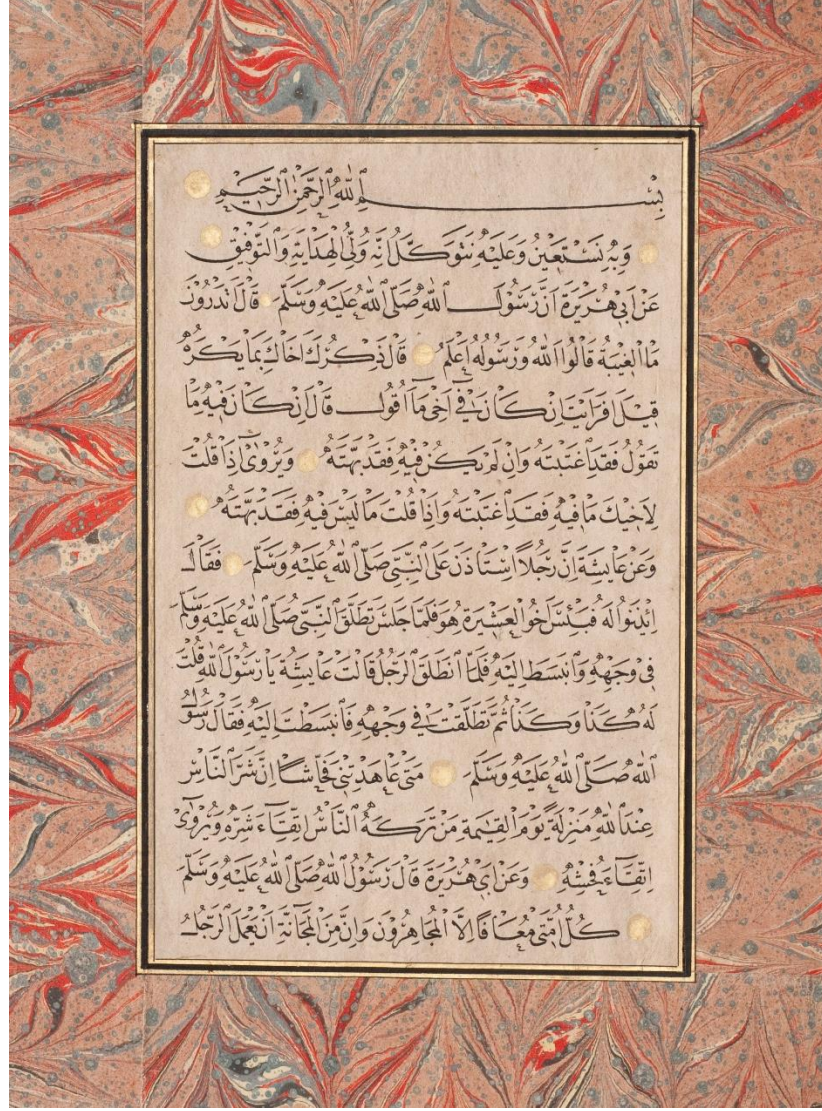 بِسْمِ اللّٰهِ الرَّحْمٰنِ الرَّحِيمِ
وَبِهِ نَسْتَعِينُ وَعَلَيْهِ نَتَوَكَّلُ اِنَّهُ وَلِىُّ الْهِدَايَةِ وَالتَّوْفِيقِ
عَنْ اَبِى هُرَيْرَةَ اَنَّ رَسُولَ اللّٰهِ صَلَّى اللّٰهُ عَلَيْهِ وَسَلَّمَ قَالَ اَتَدْرُونَ
مَا الْغِيبَةُ قَالُوا اَللّٰهُ وَرَسُولُهُ اَعْلَمُ قَالَ ذِكْرُكَ اَخَاكَ بِمَا يَكْرَهُ
قِيلَ اَفَرَاَيْتَ اِنْ كَانَ فِى اَخِى مَا اَقُولُ قَالَ اِنْ كَانَ فِيهِ مَا
تَقُولُ فَقَدِ اغْتَبْتَهُ وَاِنْ لَمْ يَكُنْ فِيهِ فَقَدْ بَهَتَّهُ وَيُرْوٰى اِذَا قُلْتَ
لِاَخِيكَ مَا فِيهِ فَقَدِ اغْتَبْتَهُ وَاِذَا قُلْتَ مَا لَيْسَ فِيهِ فَقَدْ بَهَتَّهُ
وَعَنْ عَايِشَةَ اِنَّ رَجُلًا اِسْتَاذَنَ عَلَى النَّبِىِّ صَلَّى اللّٰهُ عَلَيْهِ وَسَلَّمَ فَقَالَ
اِئْذَنُوا لَهُ فَبِئْسَ اَخُو الْعَشِيرَةِ هُوَ فَلَمَّا جَلَسَ تَطَلَّقَ النَّبِىُّ صَلَّى اللّٰهُ عَلَيْهِ وَسَلَّمَ
فِى وَجْهِهِ وَانْبَسَطَ اِلَيْهِ فَلَمَّا انْطَلَقَ الرَّجُلُ قَالَتْ عَايِشَةُ يَا رَسُولَ اللّٰهِ قُلْتَ
لَهُ كَذَا وَكَذَا ثُمَّ تَطَلَّقْتَ فِى وَجْهِهِ فَانْبَسَطْتَ اِلَيْهِ فَقَالَ رَسُولُ
اللّٰهِ صَلَّى اللّٰهُ عَلَيْهِ وَسَلَّمَ مَتٰى عَاهَدْتِنِى فَحَّاشًا اِنَّ شَرَّ النَّاسِ
عِنْدَ اللّٰهِ مَنْزِلَةً يَوْمَ الْقِيٰمَةِ مَنْ تَرَكَهُ النَّاسُ اتِّقَاءَ شَرِّهِ وَيُرْوٰى
اتِّقَاءَ فُحْشِهِ وَعَنْ اَبِى هُرَيْرَةَ قَالَ رَسُولُ اللّٰهِ صَلَّى اللّٰهُ عَلَيْهِ وَسَلَّمَ
كُلُّ اُمَّتِى مُعَافًا اِلَّا الْمُجَاهِرُونَ وَاِنَّ مِنَ الْمَجَانَةِ اَنْ يَعْمَلَ الرَّجُلُ